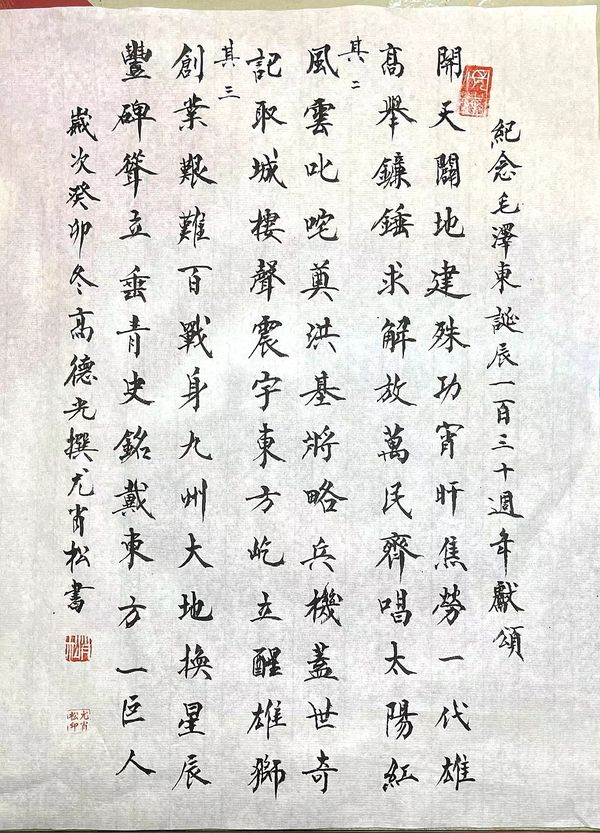 紀念毛澤東誕辰一百三十週年獻頌
開天闢地建殊功宵旰焦勞一代雄
高舉鐮錘求解放萬民齊唱太陽紅
其二
風雲叱咤奠洪基將略兵機蓋世奇
記取城樓聲震宇東方屹立醒雄獅
其三
創業艱難百戰身九州大地換星辰
豐碑聳立垂青史銘戴東方一巨人
歲次癸卯冬高德光撰尤肖松書
尤肖
松印